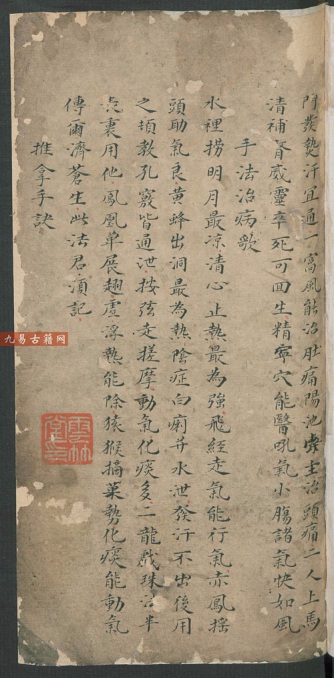 門發熱汗宜通一窩風能治肚痛陽池穴主治頭痛二人上馬
清補腎威靈卒死可回生精寧穴能醫吼氣小腸諸氣快如風
手法治病歌
水裡撈明月最凉清心止熱最為強飛經走氣能行氣赤鳳搖
頭助氣良黄蜂出洞最為熱陰症白痢并水泄發汗不出後用
之頓教孔竅皆通泄按弦走搓摩動氣化痰多二龍戲珠法半
表裏用他鳳凰单展翅虛浮熱能除猿猴摘菓勢化痰能動氣
傳爾濟蒼生此法君須記
推拿手訣
九易古籍网